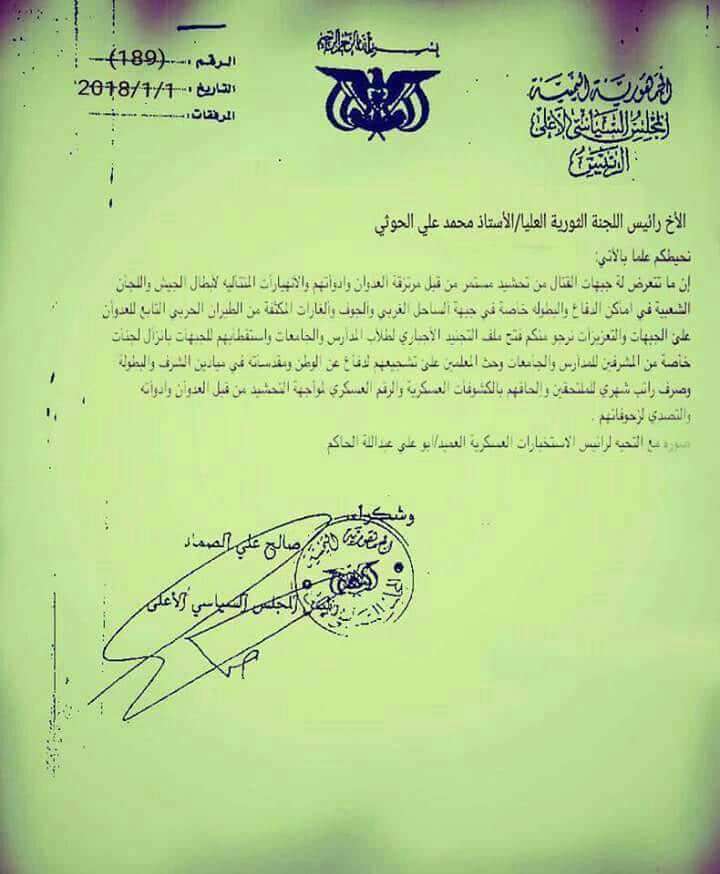 بسم الله الرحمن الرحيم
الجمهورية اليمنية
المجلس السياسي الأعلى
الرئيس
الرقم : (189)
التاريخ : 2018/1/1
المرفقات:
الأخ رائيس اللجنة الثورية العليا/الأستاذ محمد علي الحوثي
نحيطكم علما بالأتي:
إن ما تتعرض لة جبهات القتال من تحشيد مستمر من قبل مرتزقة العدوان وادواتهم والانهيارات المتتاليه لأبطال الجيش واللجان
الشعبية في اماكن الدفاع والبطوله خاصة في جبهة الساحل الغربي والجوف والغارات المكثفة من الطيران الحربي التابع للعدوان
على الجبهات والتعزيزات نرجو منكم فتح ملف التجنيد الأجباري لطلاب المدارس والجامعات واستقطابهم للجبهات بانزال لجنات
خاصة من المشرفين للمدارس والجامعات وحث المعلمين على تشجيعهم لدفاع عن الوطن ومقدساته في ميادين الشرف والبطولة
وصرف راتب شهري للملتحقين وإلحاقهم بالكشوفات العسكرية والرقم العسكري لمواجهة التحشيد من قبل العدوان وادواته
والتصدي لزحوفاتهم .
صوره مع التحيه لرائيس الاستخبارات العسكرية العميد/ابو علي عبدالله الحاكم
وشكرا،،
صالح علي الصماد
رئيس المجلس السياسي الأعلى
الجمهورية اليمنية